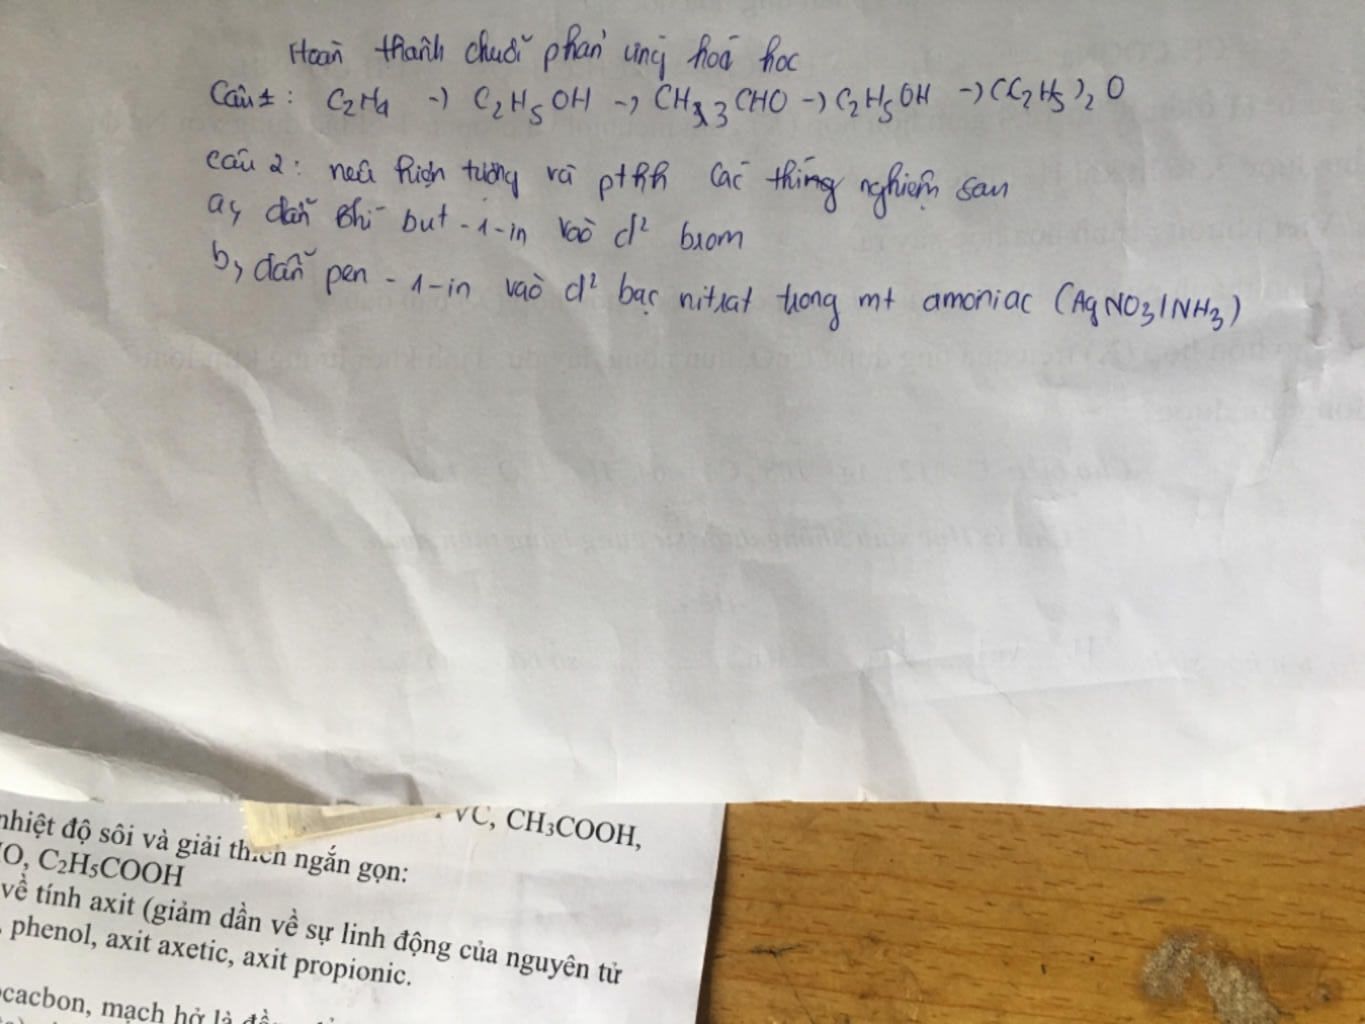 Hoàn thành chuỗi phản ứng hoá học
Câu 1: C2H4 -> C2H5OH -> CH3CHO -> C2H5OH -> (C2H5)2O
câu 2: nêu hiện tượng và pthh các thíng nghiệm sau
a, dẫn khí but-1-in vào d² brom
b, dẫn pen-1-in vào d² bạc nitrat trong mt amoniac (AgNO3/NH3)
nhiệt độ sôi và giải thích ngắn gọn:
VC, CH3COOH,
O, C2H5COOH
về tính axit (giảm dần về sự linh động của nguyên tử
, phenol, axit axetic, axit propionic.
ocacbon, mạch hở là